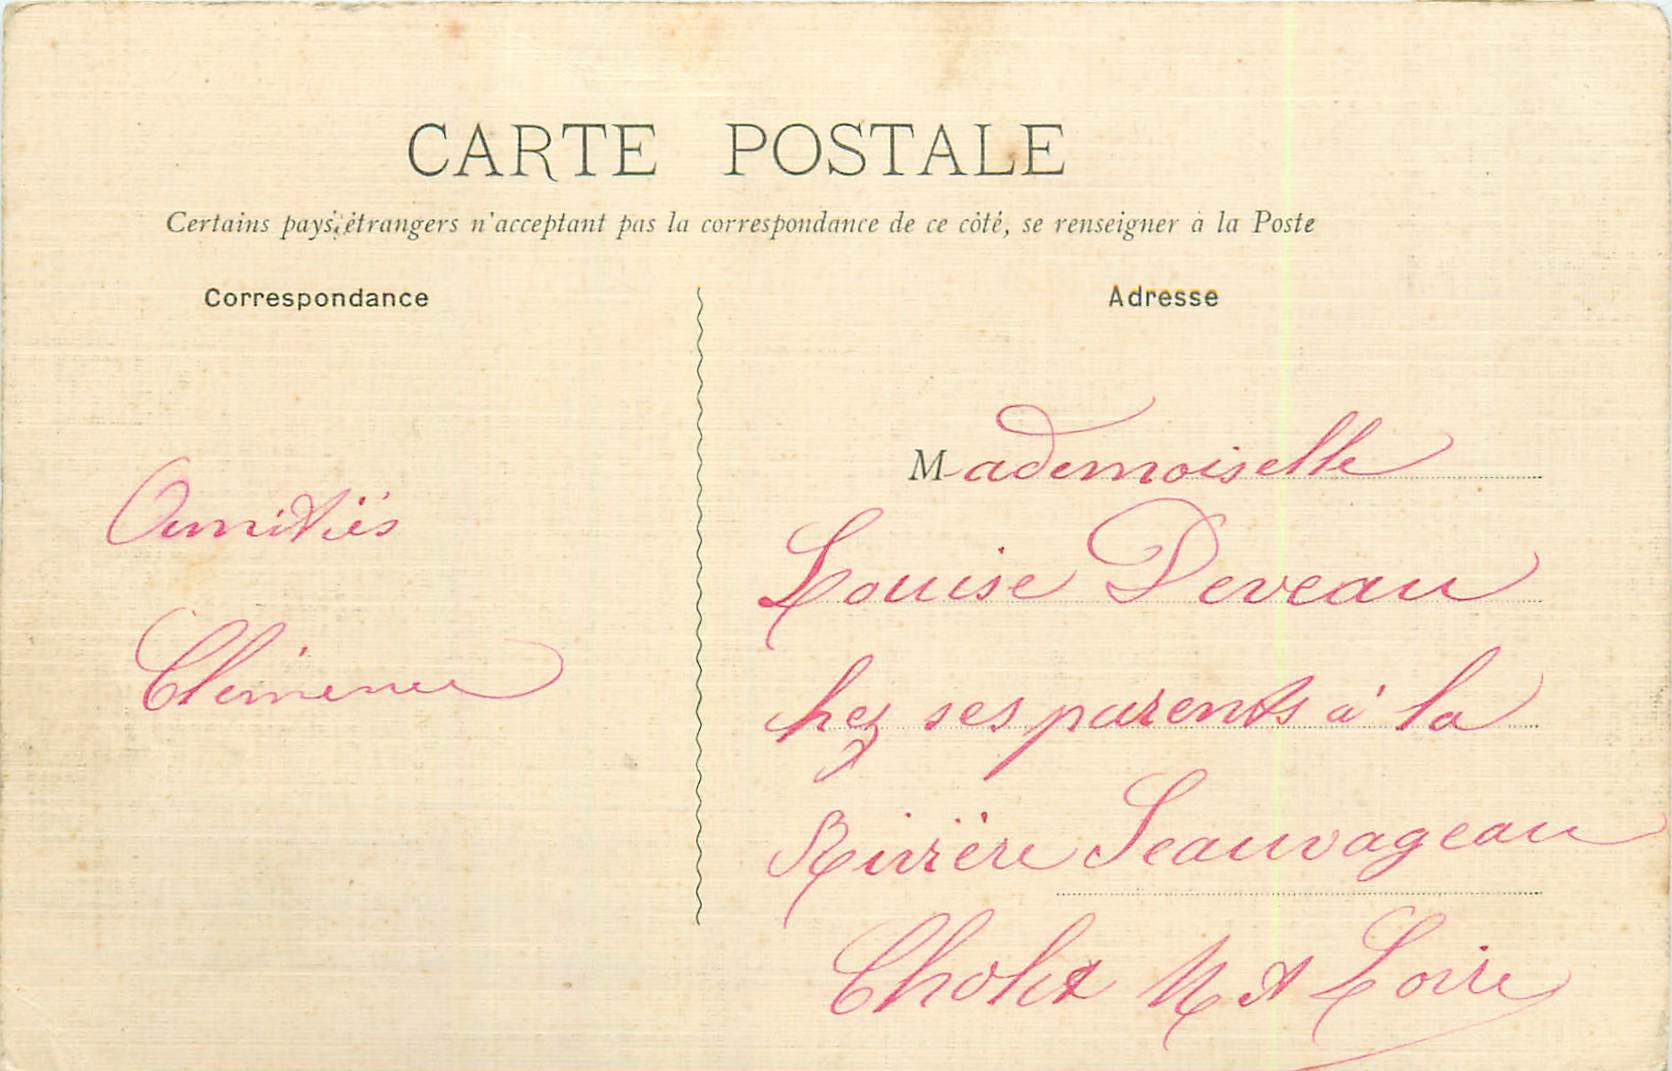 CARTE POSTALE
Certains pays étrangers n'acceptant pas la correspondance de ce côté, se renseigner à la Poste
Correspondance
Adresse
Amitiés
Clémence
Mademoiselle
Louise Deveau
chez ses parents à la
Rivière Seauvageau
Cholet M et Loire